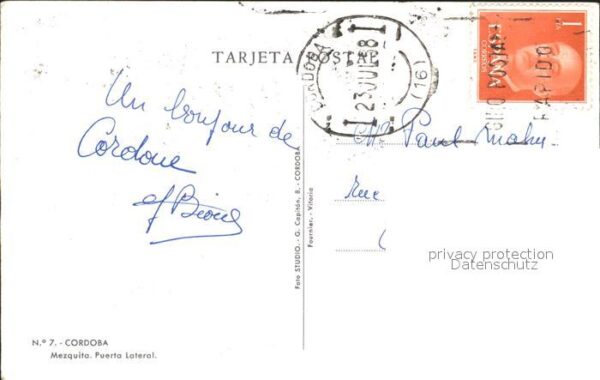 TARJETA POSTAL
CORDOBA
23 JUL 58
(16)
1
PTA
CORREOS
GIRO POSTAL
RAPIDO
Un bonjour de
Cordoue
Paul
rue
Foto STUDIO. - G. Capitán, 8. - CORDOBA
Fournier. - Vitoria
privacy protection
Datenschutz
N.º 7. - CORDOBA
Mezquita. Puerta Lateral.